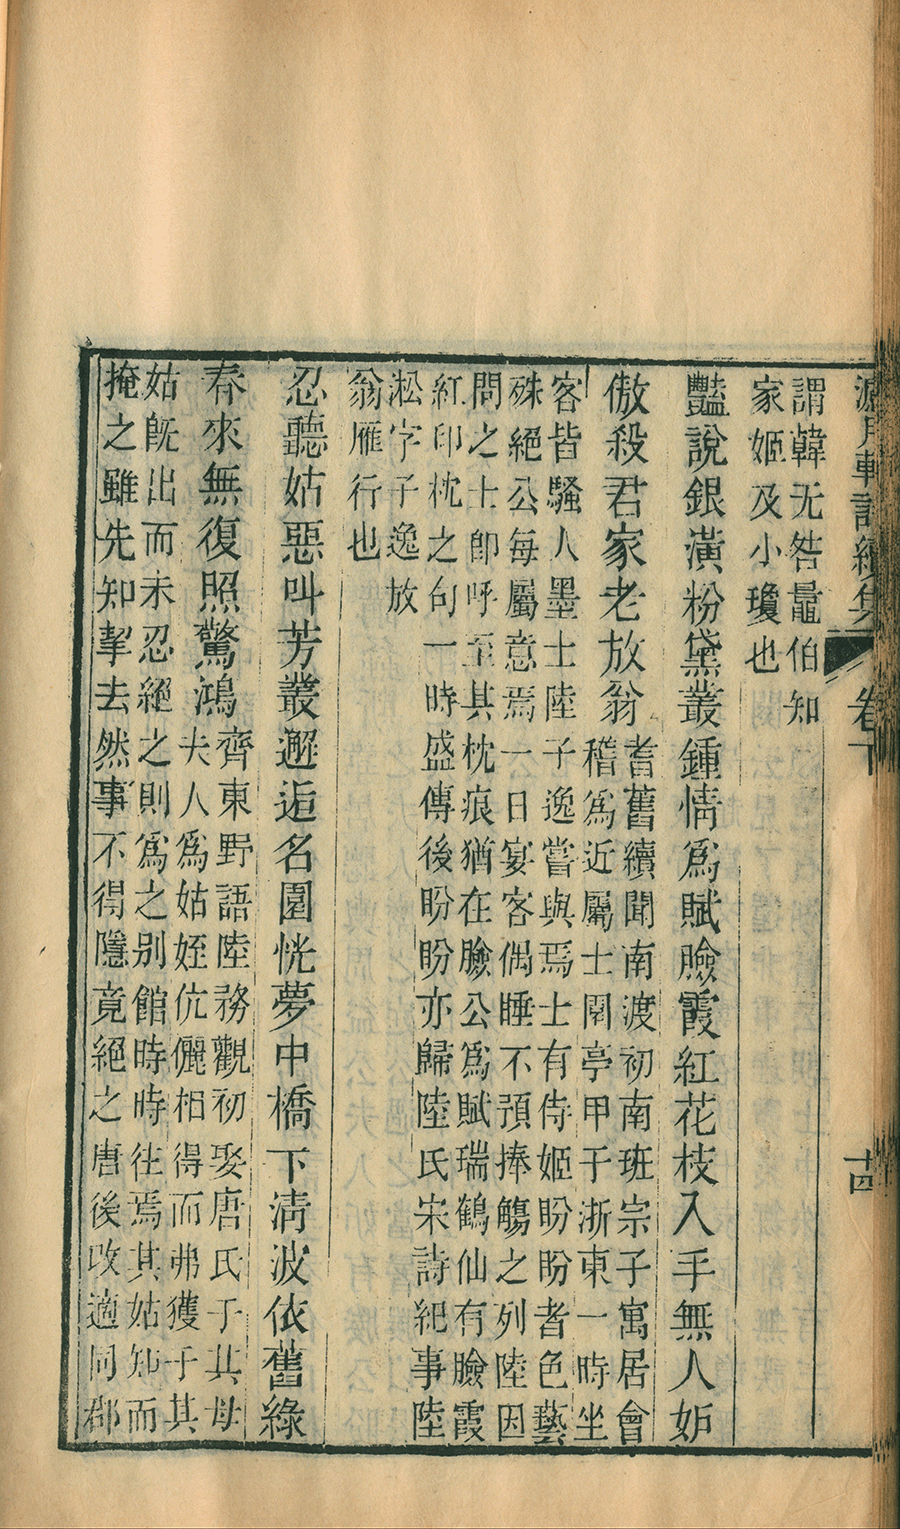 月軒詩續集 卷下 十四
謂韓无咎鼂伯知
家姬及小瓊也
豔說銀潢粉黛叢鍾情爲賦臉霞紅花枝入手無人妒
傲殺君家老放翁
耆舊續聞南渡初南班宗子寓居會
稽爲近屬士園亭甲于浙東一時坐
客皆騷人墨士陸子逸嘗與焉士有侍姬盼盼者色藝
殊絕公每屬意焉一日宴客偶睡不預捧觴之列陸因
問之士卽呼至其枕痕猶在臉公爲賦瑞鶴仙有臉霞
紅印枕之句一時盛傳後盼盼亦歸陸氏宋詩紀事陸
淞字子逸放
翁雁行也
忍聽姑惡叫芳叢邂逅名園恍夢中橋下淸波依舊綠
春來無復照驚鴻
齊東野語陸務觀初娶唐氏于其母
夫人爲姑姪伉儷相得而弗獲于其
姑旣出而未忍絕之則爲之别館時時往焉其姑知而
掩之雖先知挈去然事不得隱竟絕之唐後改適同郡